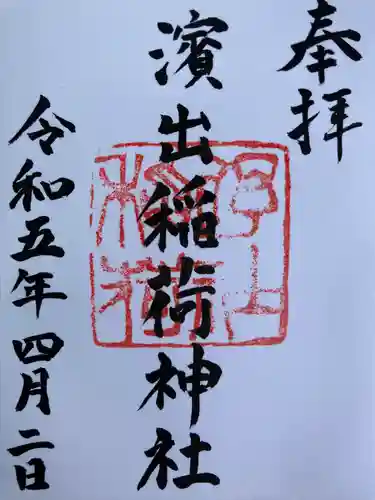 奉拝
濱出稲荷神社
令和五年四月二日